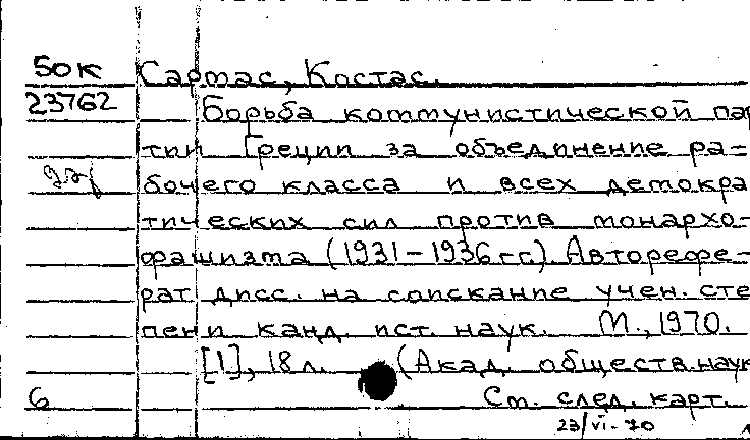 50к Сармас, Костас.
23762 Борьба коммунистической пар
тии Греции за объединение ра=
бочего класса и всех демокра
тических сил против монархо-
фашизма (1931-1936 гг). Авторефе-
рат дисс. на соискание учен. сте
пени канд. ист. наук. М., 1970.
[1], 18 л. (Акад. обществ. наук
6 См. след. карт.
23/VI-70